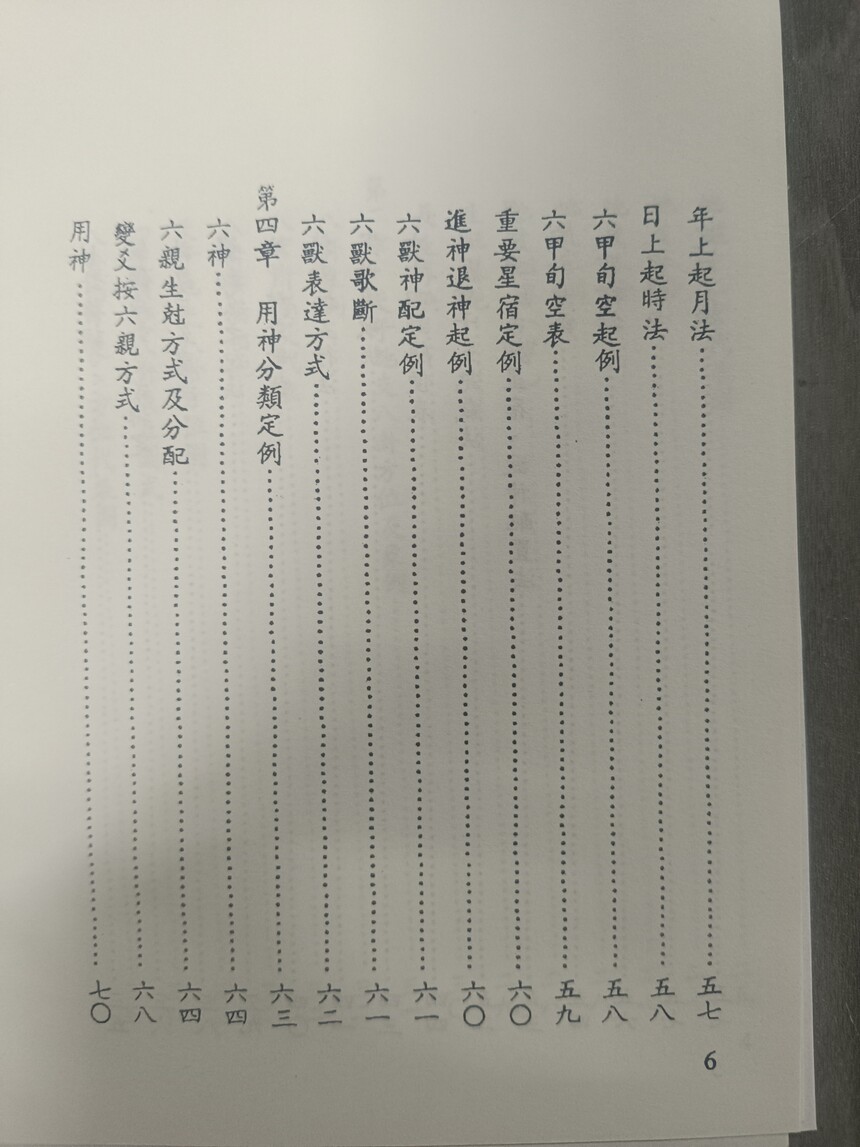 年上起月法……五七
日上起時法……五八
六甲旬空起例……五八
六甲旬空表……五九
重要星宿定例……六〇
進神退神起例……六〇
六獸神配定例……六一
六獸歌斷……六一
六獸表達方式……六二
第四章　用神分類定例……六三
六神……六四
六親生尅方式及分配……六四
變爻按六親方式……六八
用神……七〇
6